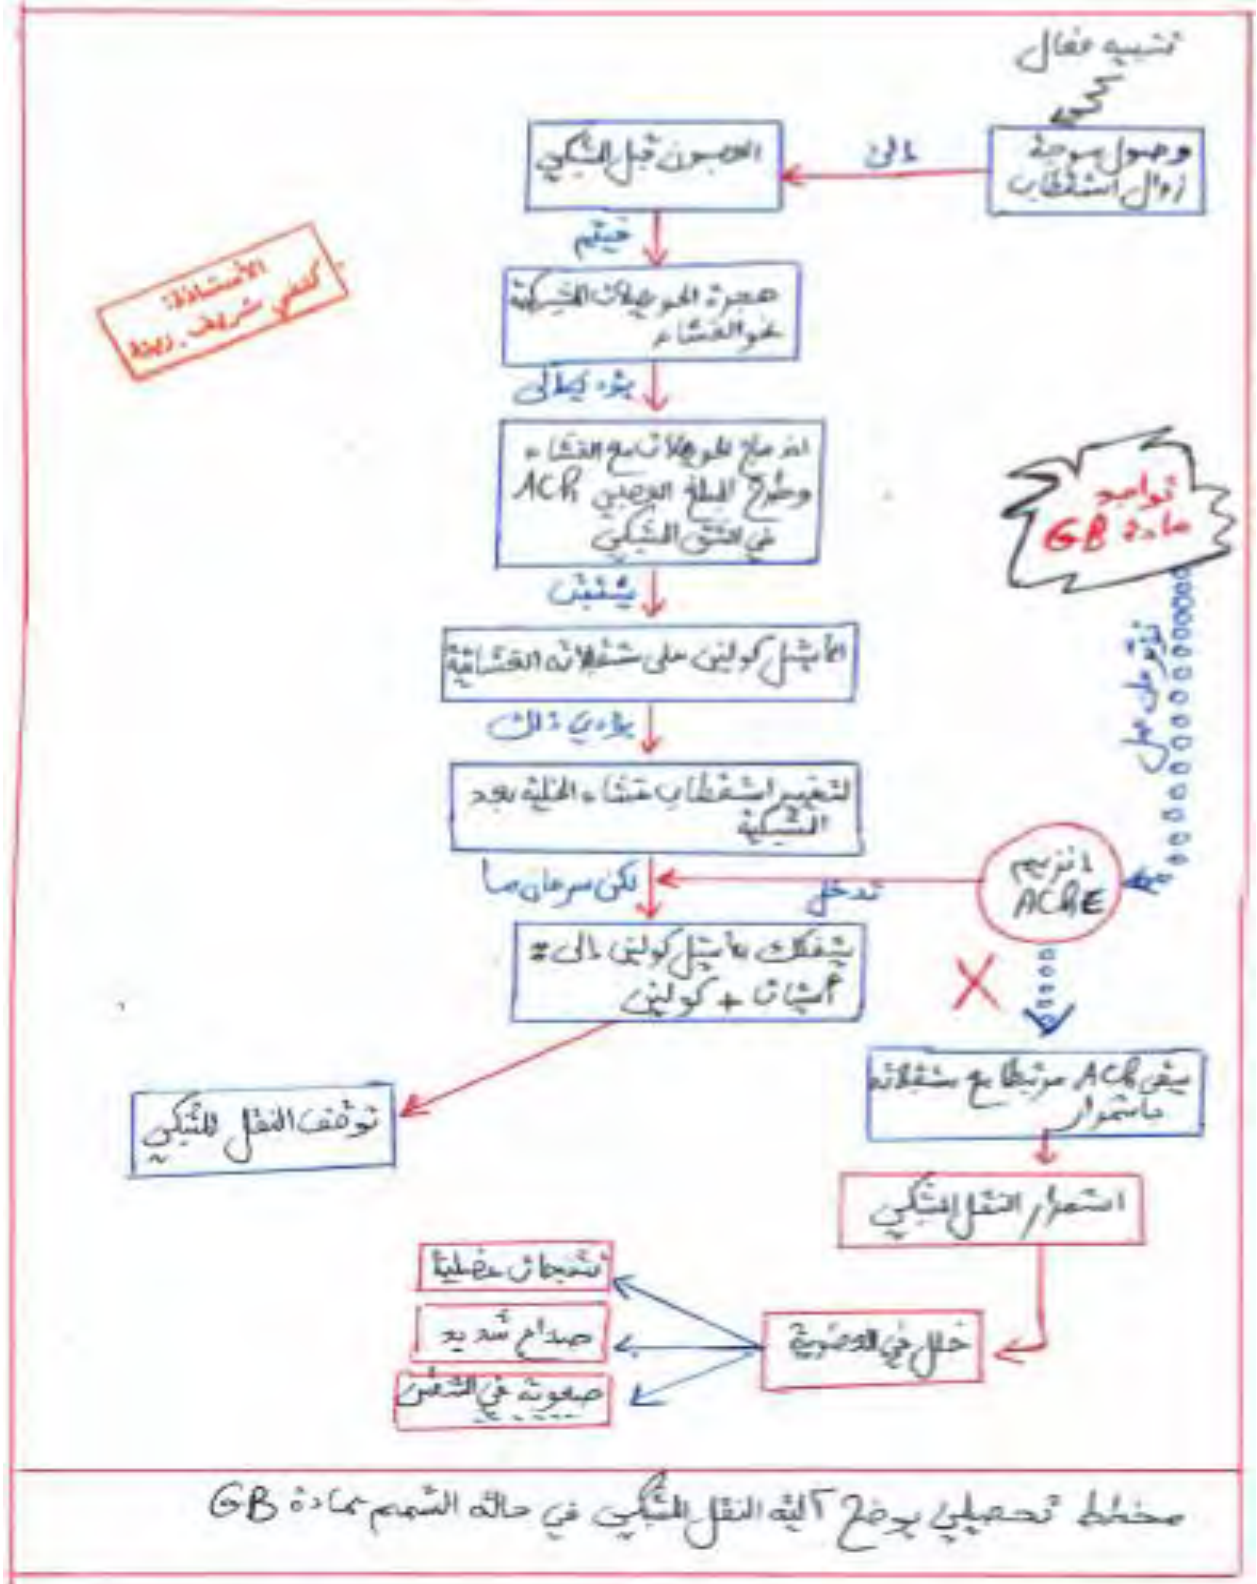 تنبيه فعال
وصول موجة
زوال استقطاب
إلى
العصبون قبل المشبكي
فيتم
هجرة الحويصلات المشبكية
نحو الغشاء
يؤدي إلى
اندماج الحويصلات مع الغشاء
وطرح المبلغ العصبي ACh
في الشق المشبكي
يتثبت
الأستيل كولين على مستقبلاته الغشائية
يؤدي ذلك
لتغيير استقطاب غشاء الخلية بعد
المشبكية
لكن سرعان ما
تدخل
إنزيم
AChE
يتفكك الأستيل كولين إلى #
أسيتات + كولين
توقف النقل المشبكي
تواجد
مادة GB
تؤثر على عمل
يبقى ACh مرتبطا مع مستقبلاته
باستمرار
استمرار النقل المشبكي
خلل في العضوية
تشنجات عضلية
صداع شديد
صعوبة في التنفس
الأستاذة:
شريف زينة
مخطط تحصيلي يوضح آلية النقل المشبكي في حالة التسمم بمادة GB